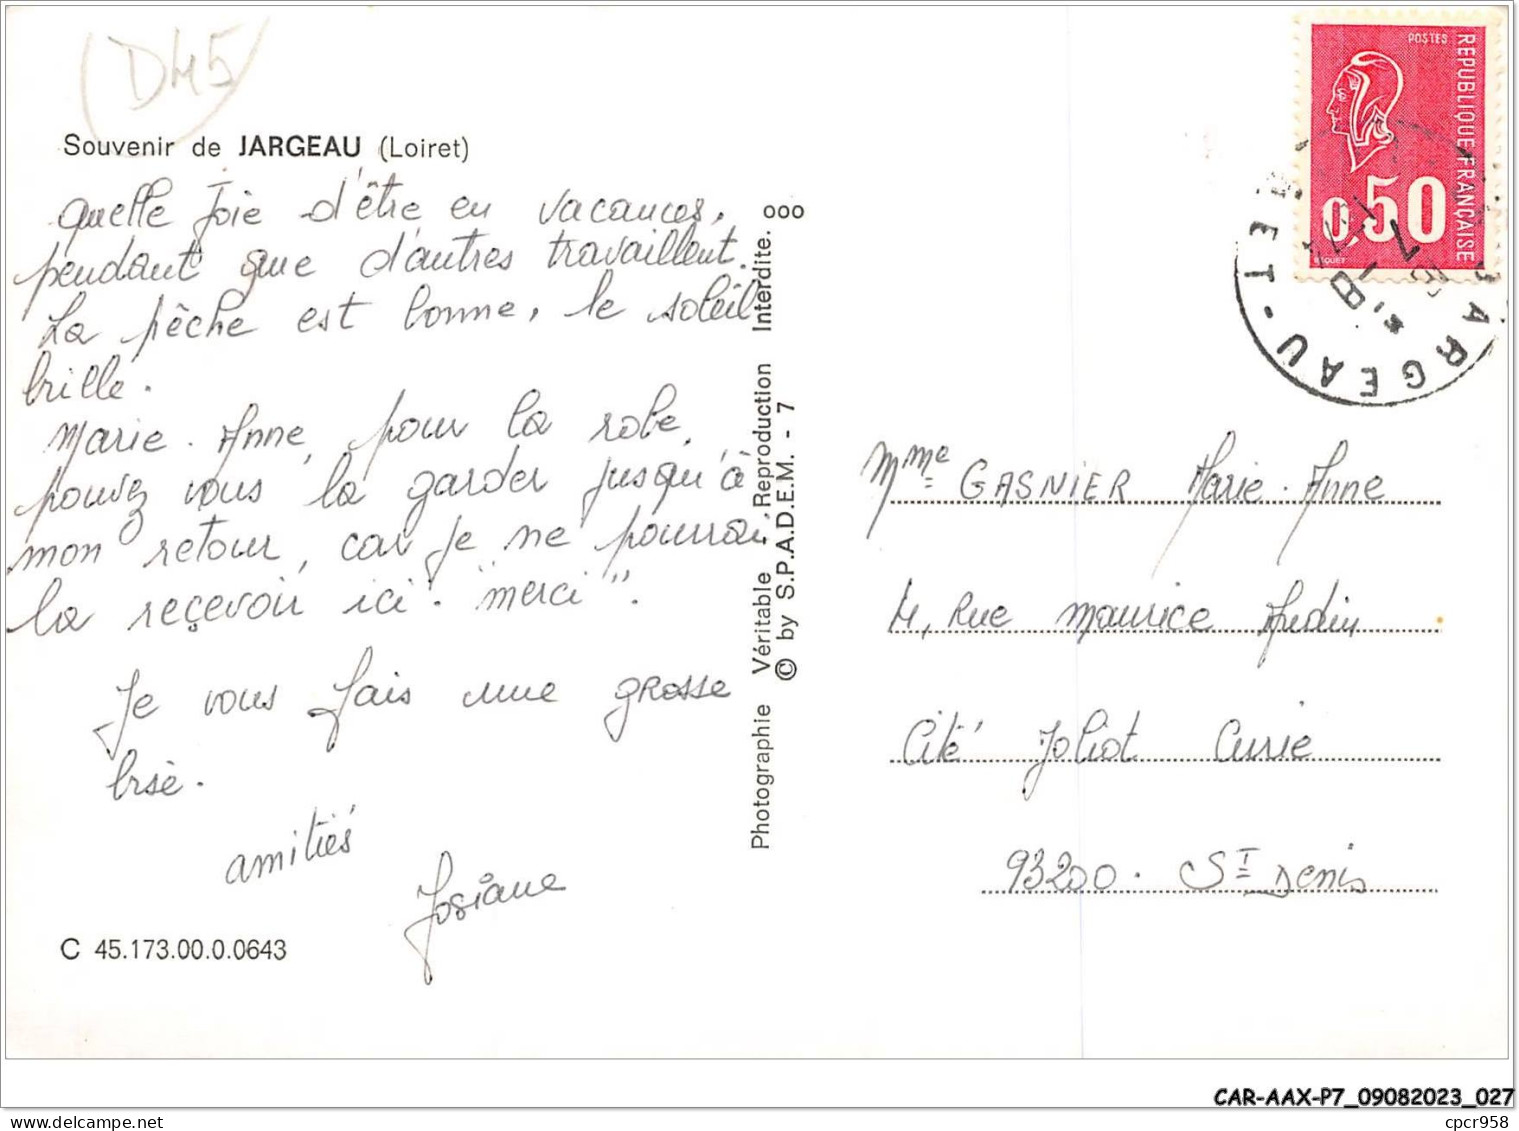 D45
Souvenir de JARGEAU (Loiret)
quelle joie d'être en vacances,
pendant que d'autres travaillent.
La pêche est bonne, le soleil
brille.
Marie-Anne, pour la robe,
pouvez vous la garder jusqu'à
mon retour, car je ne pourrai
la reçevoir ici. "merci".
Je vous fais une grosse
bise.
amitiés
Josiane
C 45.173.00.0.0643
Photographie Véritable - Reproduction Interdite. ooo
© by S.P.A.D.E.M. - 7
POSTES
REPUBLIQUE FRANÇAISE
0,50
BEQUET
JARGEAU - 
Mme GASNIER Marie-Anne
4, Rue Maurice Audin
Cité Joliot Curie
93200. ST Denis
CAR-AAX-P7_09082023_027
cpcr958